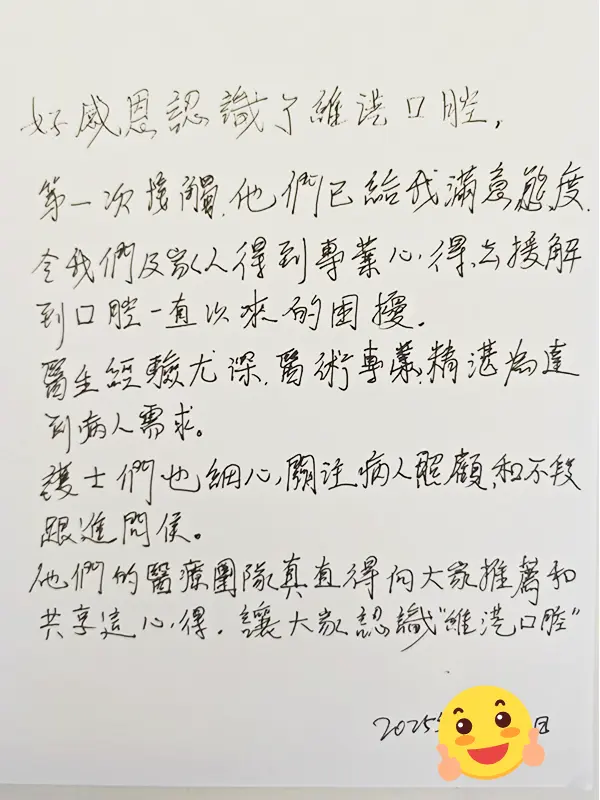 好感恩認識了維港口腔,
第一次接觸,他們已給我滿意態度.
令我們及家人得到專業心得,去接解
到口腔一直以來的困擾.
醫生經驗尤深,醫術專業,精湛為達
到病人需求。
護士們也細心,關注病人照顧,和不段
跟進問侯。
他們的醫療團隊真直得向大家推薦和
共享這心得.讓大家認識"維港口腔"
2025 日